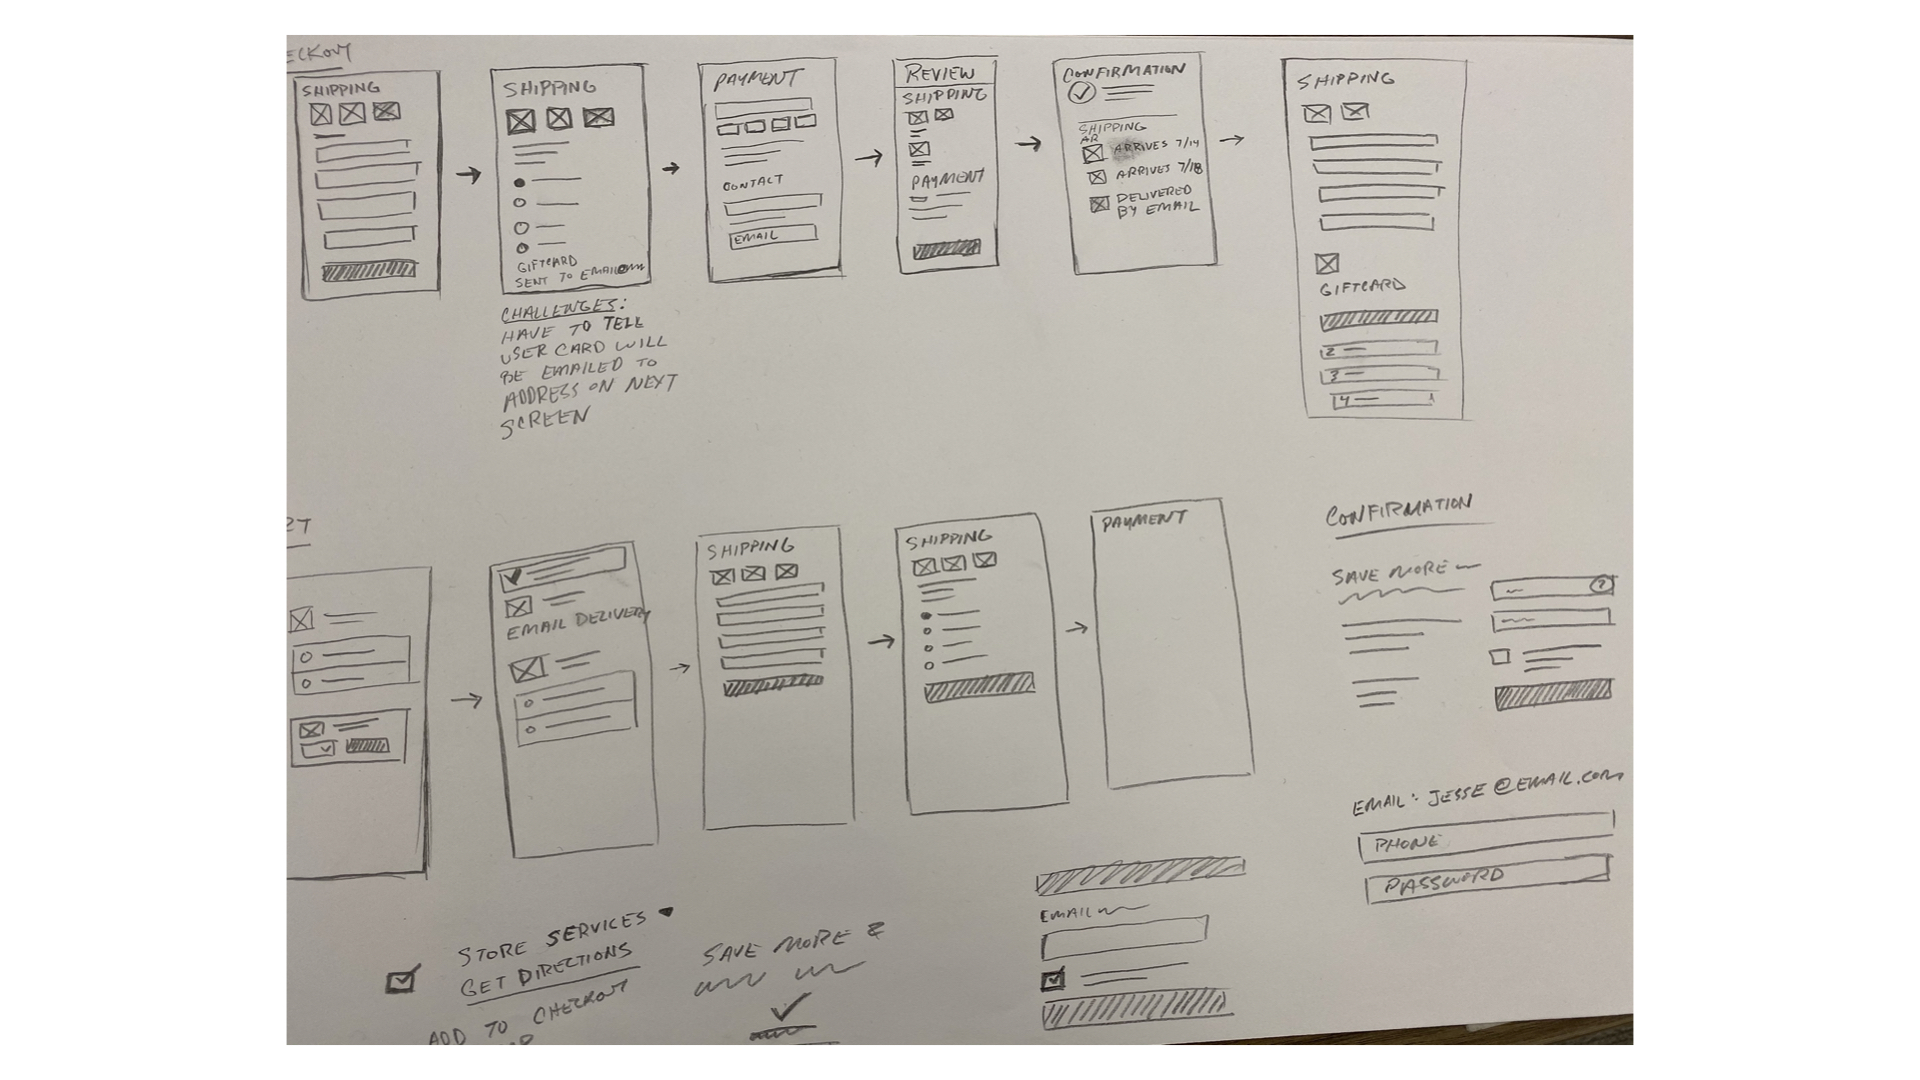 ECKOUT
SHIPPING
SHIPPING
GIFTCARD
SENT TO EMAIL
CHALLENGES:
HAVE TO TELL
USER CARD WILL
BE EMAILED TO
ADDRESS ON NEXT
SCREEN
PAYMENT
CONTACT
EMAIL
REVIEW
SHIPPING
PAYMENT
CONFIRMATION
SHIPPING
AR
ARRIVES 7/14
ARRIVES 7/18
DELIVERED
BY EMAIL
SHIPPING
GIFTCARD
2
3
4
RT
EMAIL DELIVERY
SHIPPING
SHIPPING
PAYMENT
CONFIRMATION
SAVE MORE
?
EMAIL: JESSE@EMAIL.COM
PHONE
PASSWORD
STORE SERVICES
GET DIRECTIONS
ADD TO CHECKOUT
SAVE MORE &
EMAIL